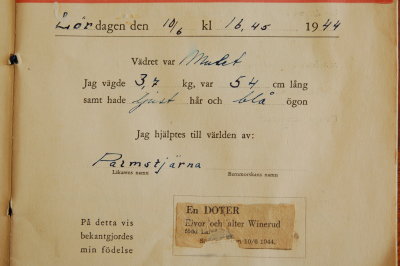 Lördagen den 10/6 kl 16,45 1944
Vädret var Mulet
Jag vägde 3,7 kg, var 54 cm lång
samt hade ljust hår och blå ögon
Jag hjälptes till världen av:
Palmstjärna
Läkarens namn Barnmorskans namn
På detta vis
bekantgjordes
min födelse
En DOTER
Eivor och alter Winerud
född
den 10/6 1944.